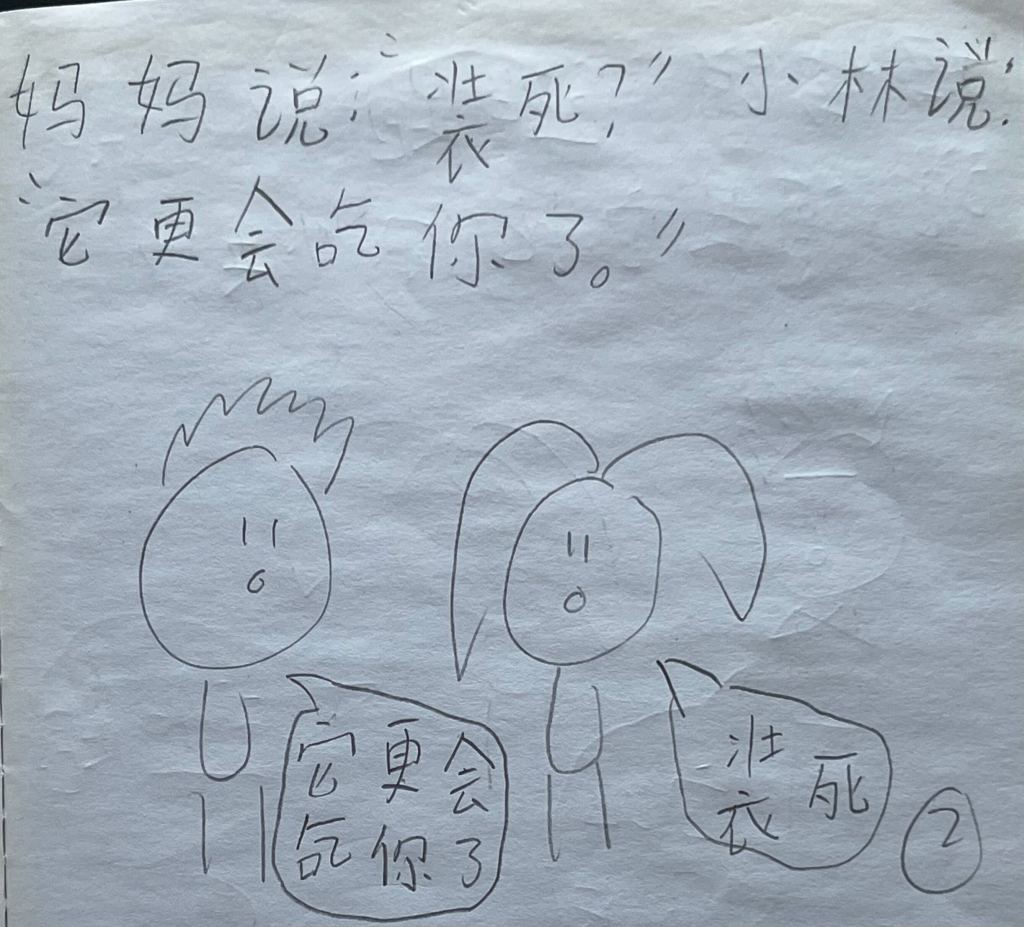 妈妈说:“装死?”小林说:
“它更会吃你了。”
它更会
吃你了
装死
②